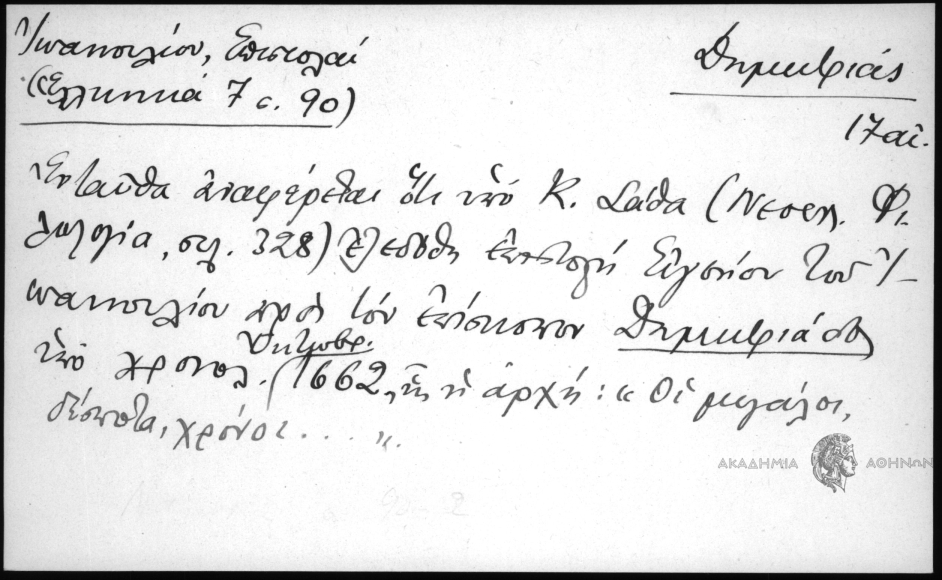 Ἰωαννουλίου, Ἐπιστολαί
(Ἑλληνικά 7 σ. 90)
Δημητριάς
17 αἰ.
Ἐνταῦθα ἀναφέρεται ὅτι ὑπό Κ. Σάθα (Νεοελ. Φι-
λολογία, σελ. 328) ἐξεδόθη ἐπιστολή Εὐγενίου τοῦ Ἰ-
ωαννουλίου πρός τόν ἐπίσκοπον Δημητριάδος
ὑπό χρονολ. Ὀκτωβρ. 1662, ἧς ἡ ἀρχή: «Οἱ μεγάλοι,
δέσποτα, χρόνοι . . . . ».
ΑΚΑΔΗΜΙΑ ΑΘΗΝΩΝ